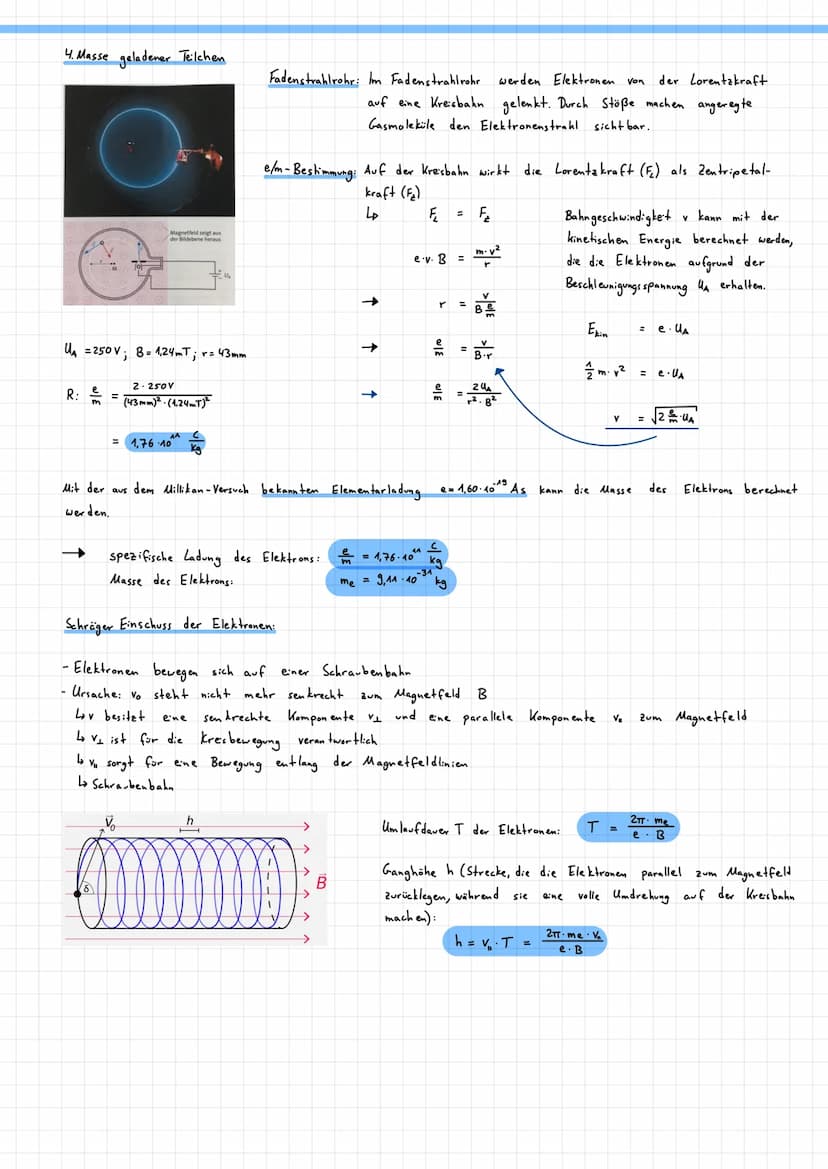 4. Masse geladener Teilchen
Fadenstrahlrohr: Im Fadenstrahlrohr werden Elektronen von der Lorentzkraft
auf eine Kreisbahn gelenkt. Durch Stöße machen angeregte
Gasmoleküle den Elektronenstrahl sichtbar.
e/m-Bestimmung: Auf der Kreisbahn wirkt die Lorentzkraft (F_L) als Zentripetal-
kraft (F_Z)
↳ F_L = F_Z
e·v·B = m·v²/r
→ r = v/(B e/m)
→ e/m = v/(B·r)
→ e/m = 2U_A/(r²·B²)
Bahngeschwindigkeit v kann mit der
kinetischen Energie berechnet werden,
die die Elektronen aufgrund der
Beschleunigungsspannung U_A erhalten.
E_kin = e·U_A
½ m·v² = e·U_A
v = √(2 e/m ·U_A)
Magnetfeld zeigt aus
der Bildebene heraus
U_A = 250V; B = 1,24mT; r = 43mm
R: e/m = 2·250V/((43mm)²·(1,24mT)²)
= 1,76·10¹¹ C/kg
Mit der aus dem Millikan-Versuch bekannten Elementarladung e = 1,60·10⁻¹⁹ As kann die Masse des Elektrons berechnet
werden.
→ spezifische Ladung des Elektrons: e/m = 1,76·10¹¹ C/kg
Masse des Elektrons: me = 9,11·10⁻³¹ kg
Schräger Einschuss der Elektronen:
- Elektronen bewegen sich auf einer Schraubenbahn
- Ursache: v₀ steht nicht mehr senkrecht zum Magnetfeld B
↳ v besitzt eine senkrechte Komponente v⊥ und eine parallele Komponente v∥ zum Magnetfeld
↳ v⊥ ist für die Kreisbewegung verantwortlich
↳ v∥ sorgt für eine Bewegung entlang der Magnetfeldlinien
↳ Schraubenbahn
v⃗₀ h
δ
B⃗
Umlaufdauer T der Elektronen: T = 2π·me/(e·B)
Ganghöhe h (Strecke, die die Elektronen parallel zum Magnetfeld
zurücklegen, während sie eine volle Umdrehung auf der Kreisbahn
machen):
h = v∥·T = 2π·me·v∥/(e·B)